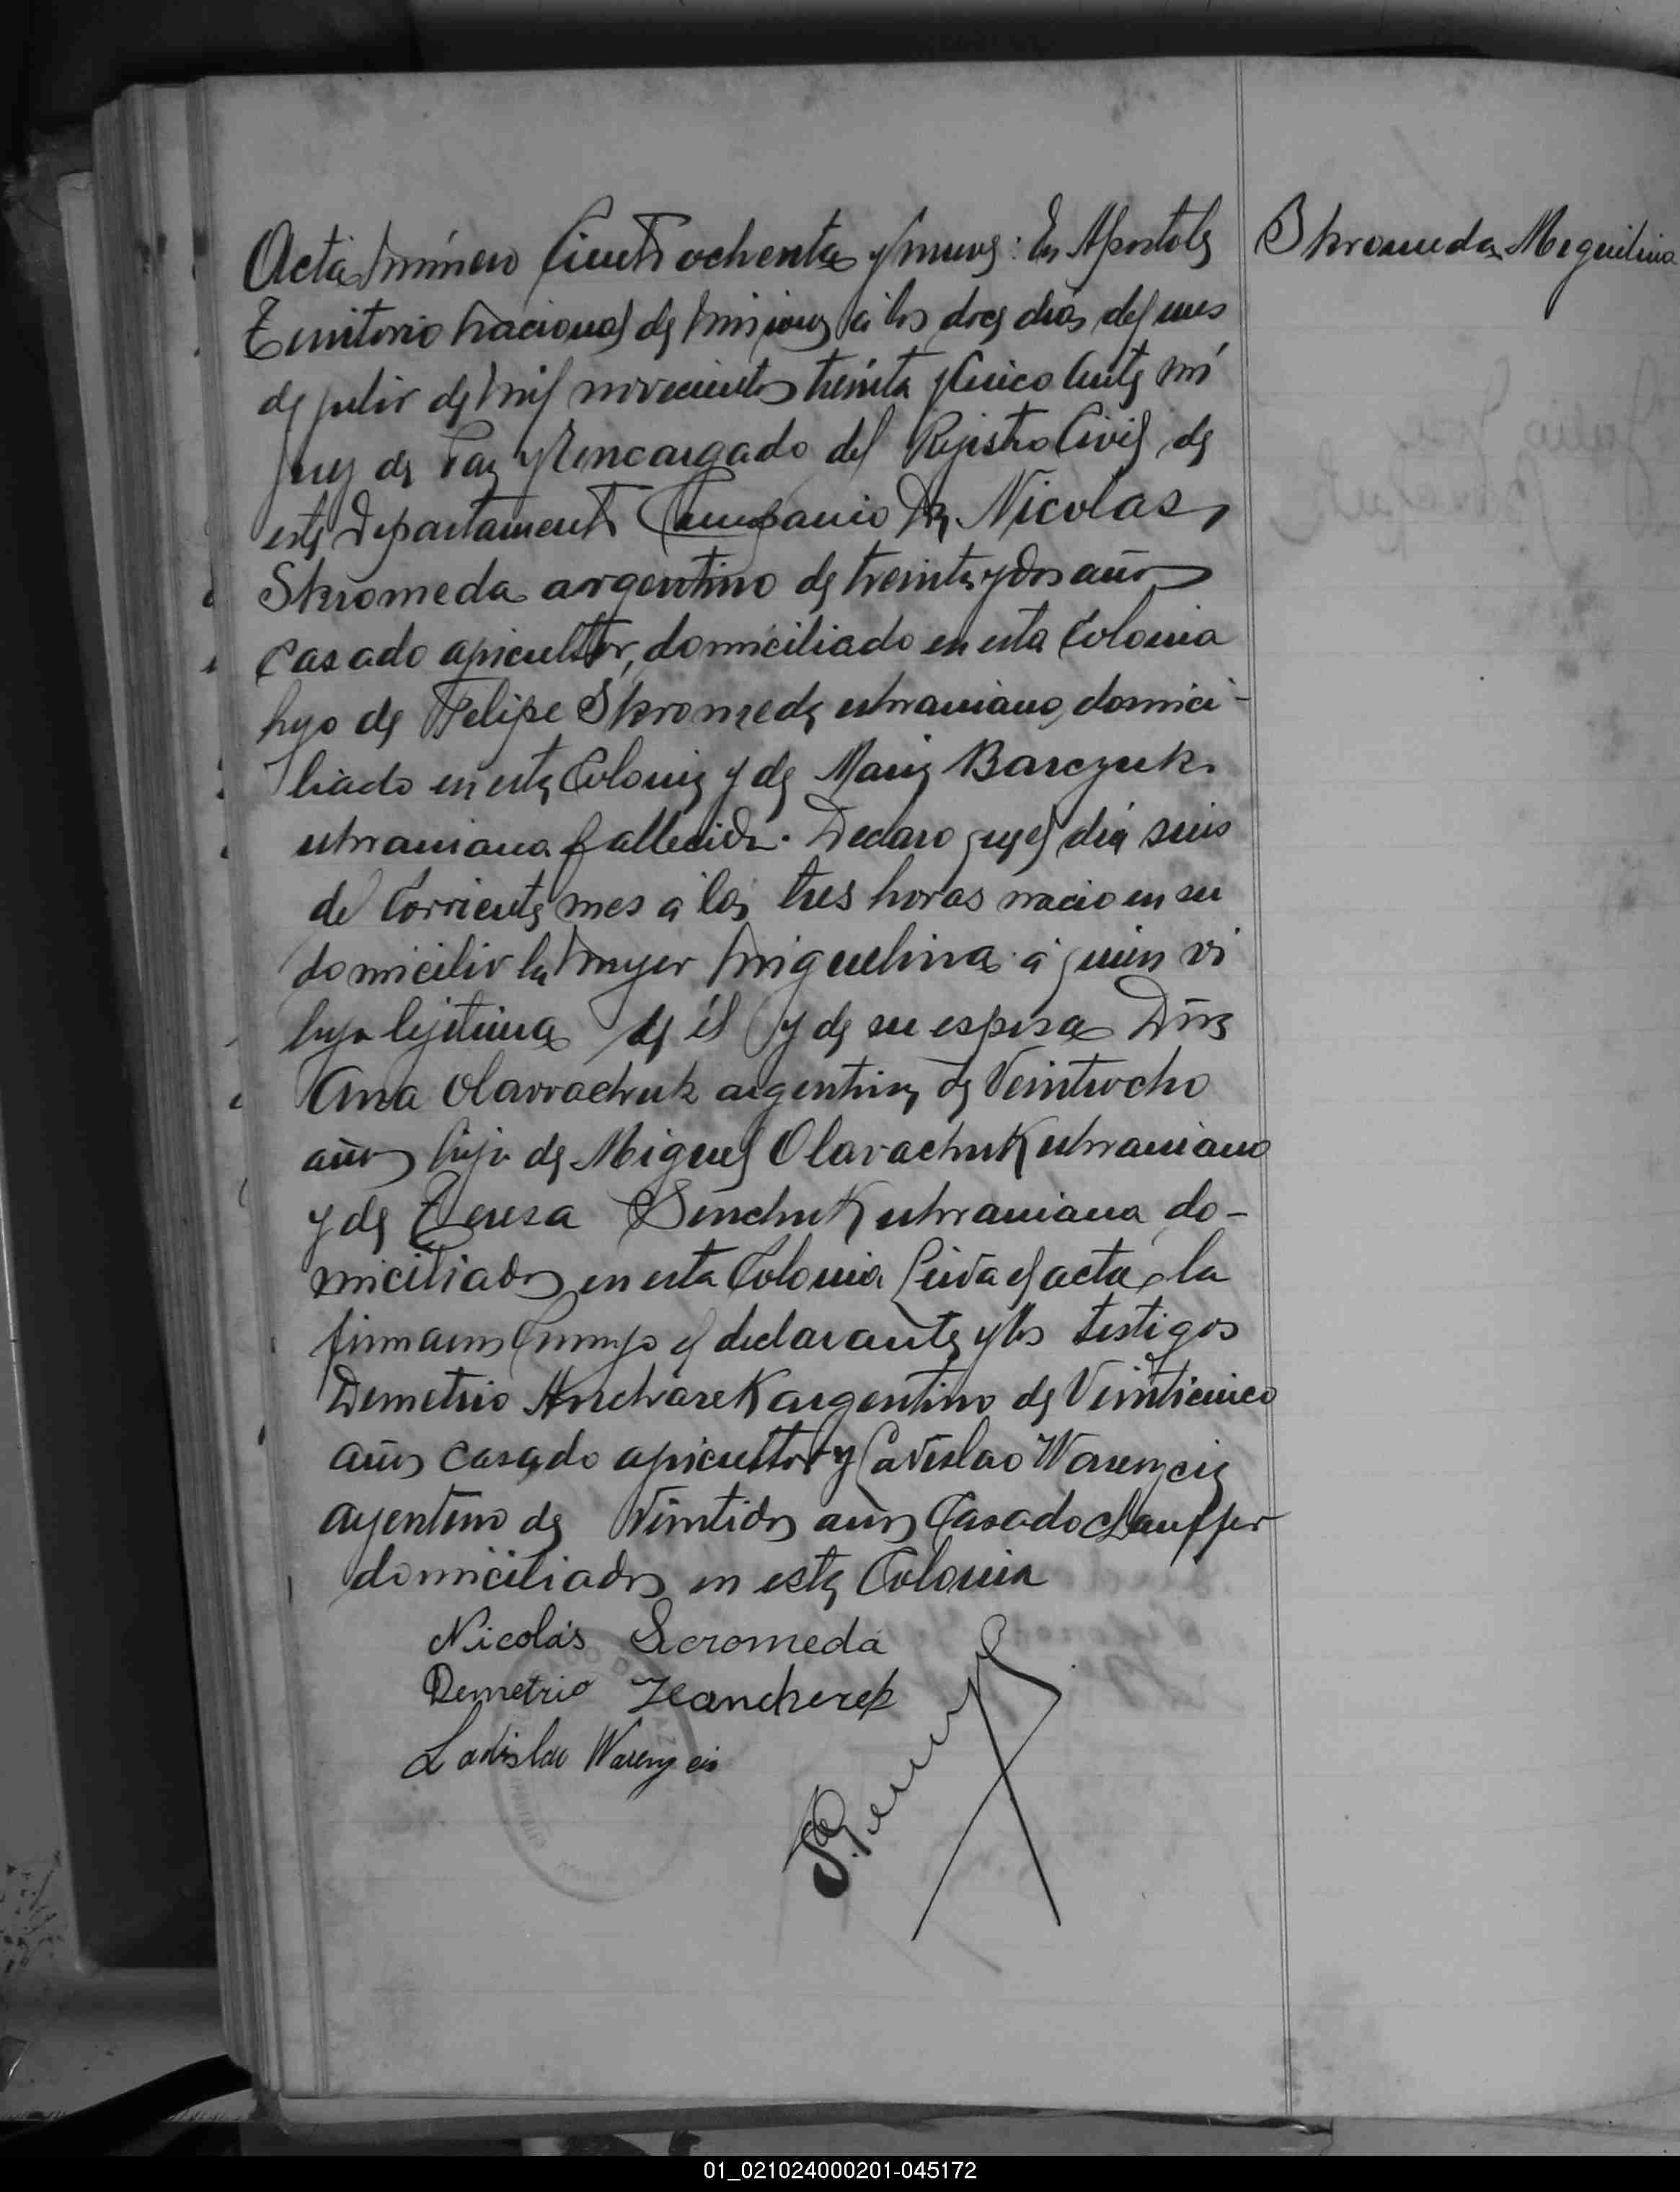 Acta número Ciento ochenta y nueve: En Apostoles
Skromeda Miguelina
Territorio Nacional de Misiones a los doce dias del mes
de julio de mil novecientos treinta y cinco ante mi
Juez de Paz y Encargado del Rejistro Civil de
este Departamento Comparecio Dn Nicolas
Skromeda argentino de treinta y dos años
casado agricultor, domiciliado en esta Colonia
hijo de Felipe Skromeda ukraniano, domici-
liado en esta Colonia y de Maria Barczuk
ukraniana fallecida. Declaro que el día seis
del Corriente mes a las tres horas nacio en su
domicilio la mujer Miguelina a quien vi
hija lejitima de él y de su esposa Dña
Ana Olavrachuk argentina de Veintiocho
años hija de Miguel Olavachuk ukraniano
y de Teresa Senchuk ukraniana do-
miciliados en esta Colonia Leida el acta la
firmaron Conmigo el declarante y los testigos
Demetrio argentino de Veinticinco
años casado agricultor y Ladislao Warenycia
argentino de Veintidos años Casado Chauffer
domiciliados en esta Colonia
Nicolás Scromeda
Demetrio
Ladislao
01_021024000201-045172